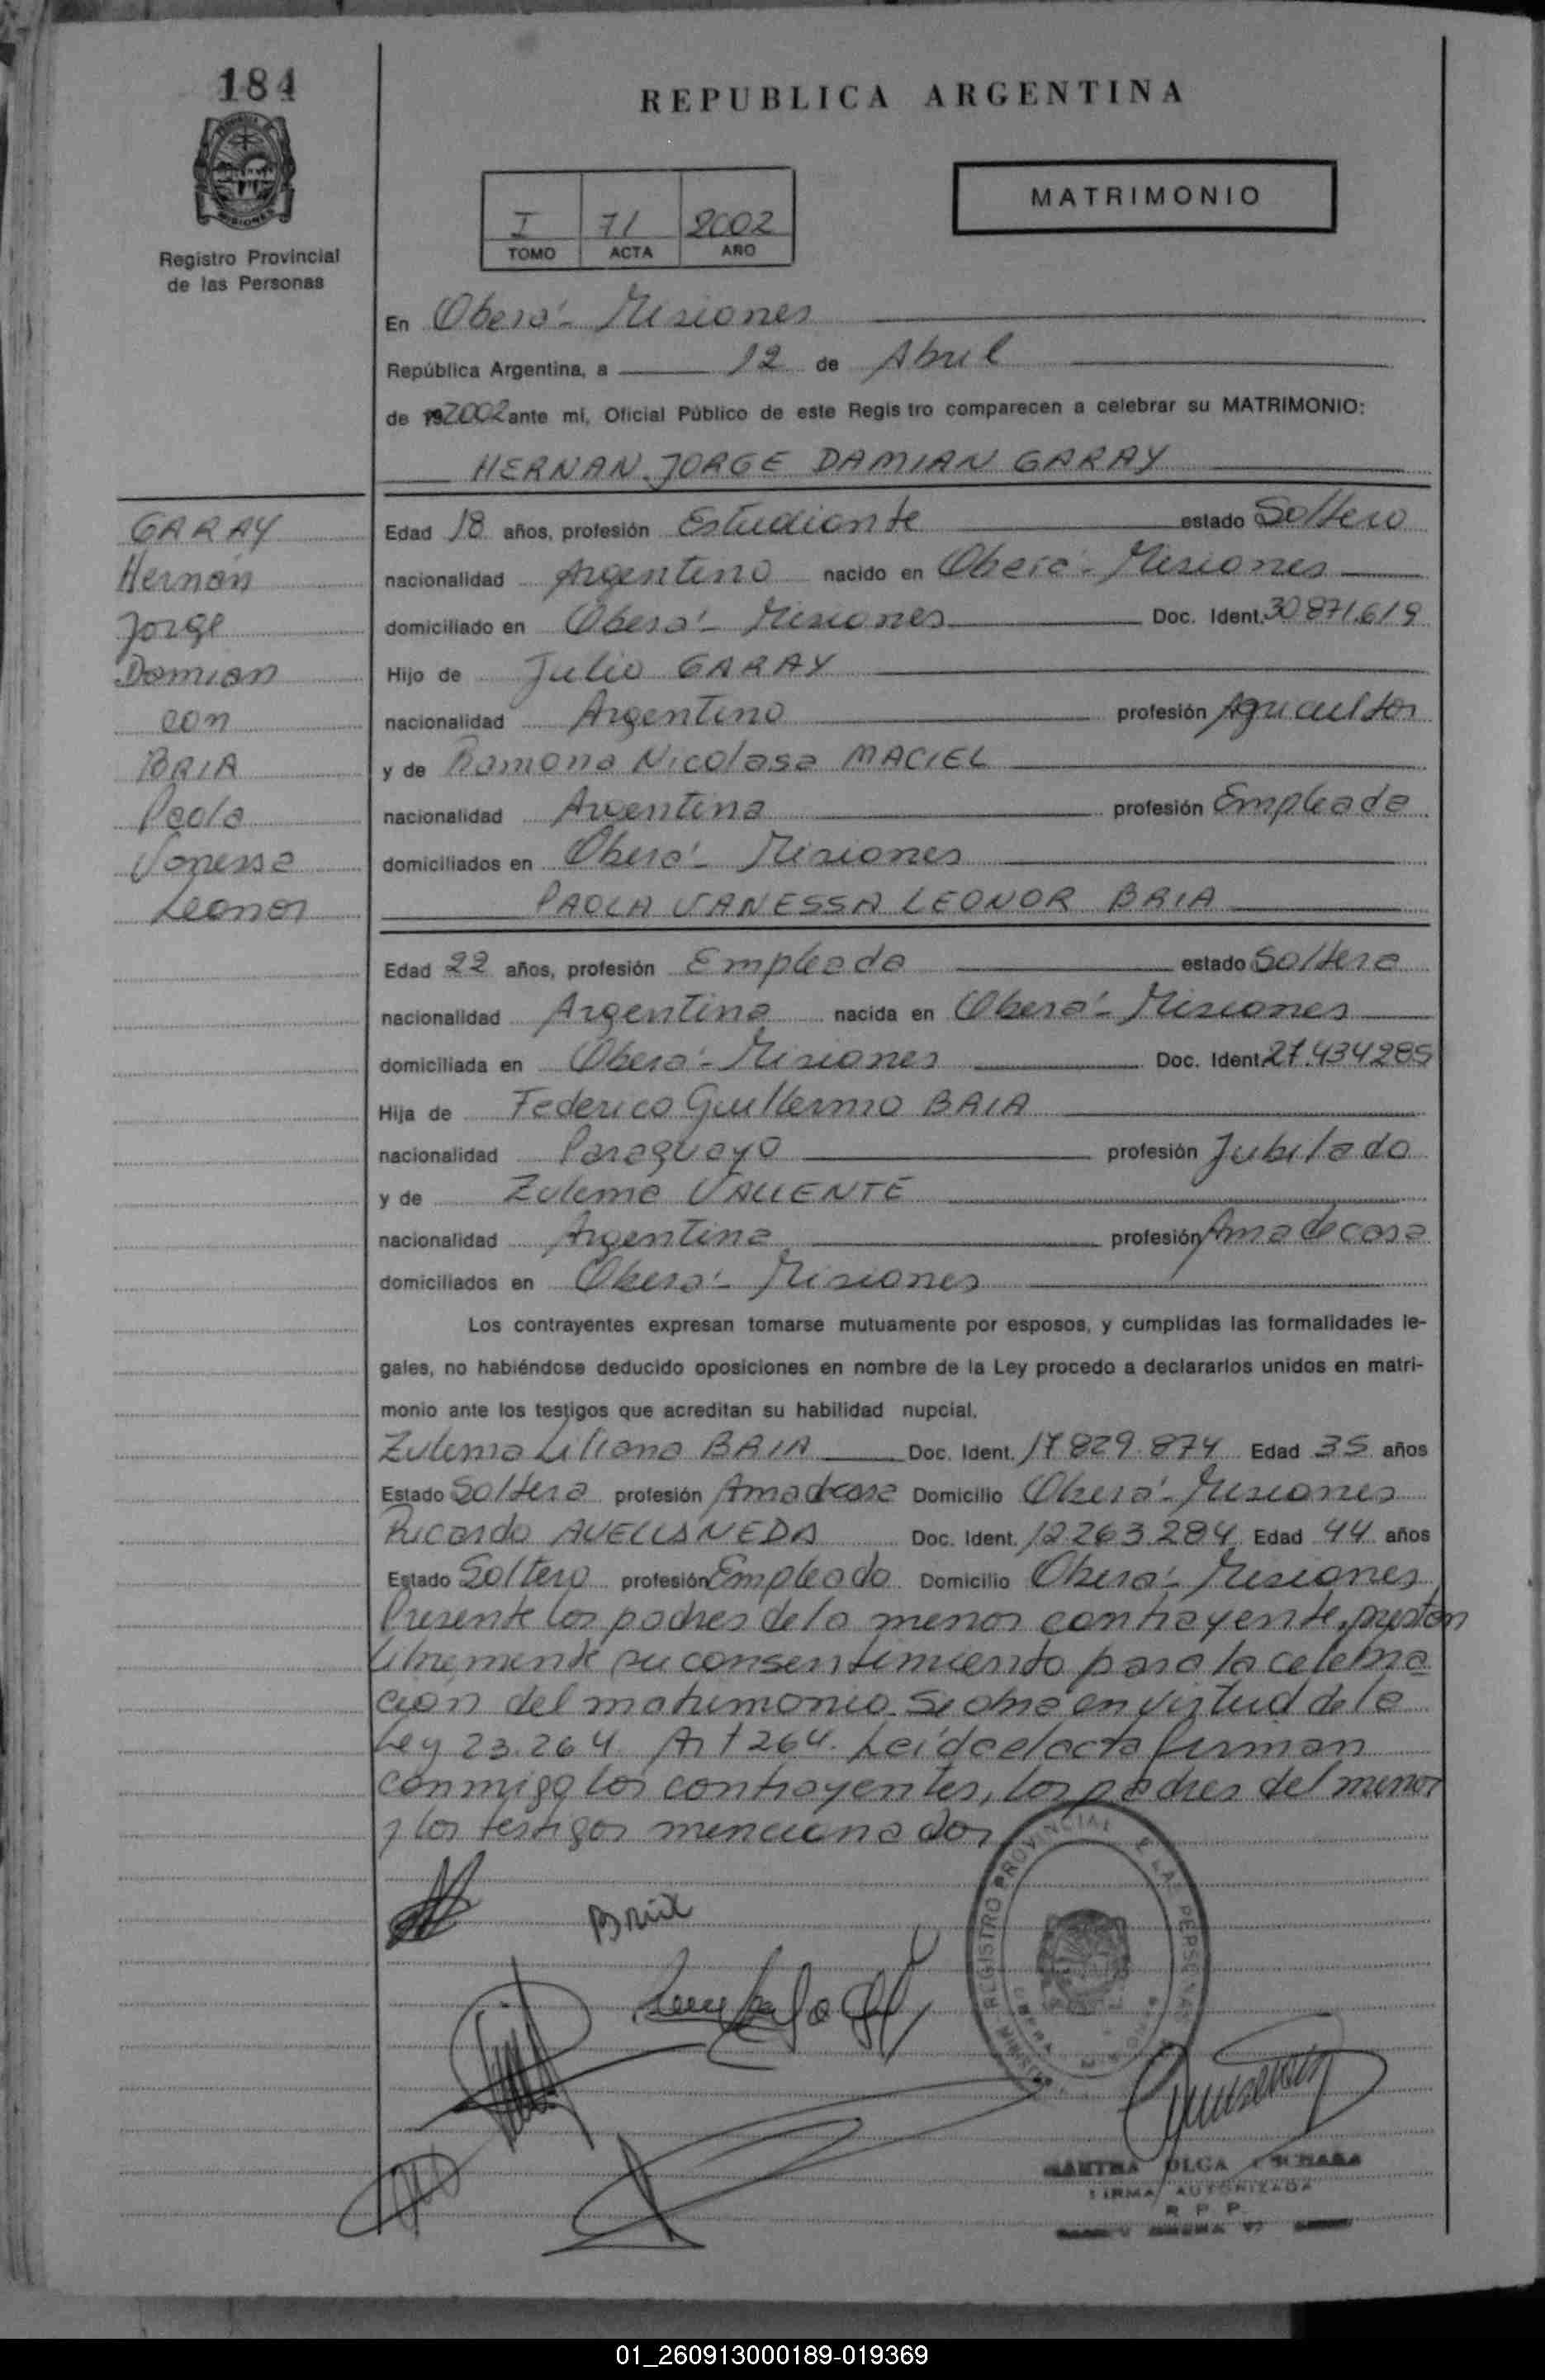 184
REPUBLICA ARGENTINA
MATRIMONIO
I 71 2002
TOMO ACTA AÑO
Registro Provincial
de las Personas
En Oberá - Misiones
República Argentina, a 12 de Abril
de 192002 ante mí, Oficial Público de este Regis tro comparecen a celebrar su MATRIMONIO:
HERNAN JORGE DAMIAN GARAY
GARAY
Hernán
Jorge
Damian
con
BRIA
Paola
Vanessa
Leonor
Edad 18 años, profesión Estudiante estado Soltero
nacionalidad Argentino nacido en Oberá - Misiones
domiciliado en Oberá - Misiones Doc. Ident. 30871.619
Hijo de Julio GARAY
nacionalidad Argentino profesión Agricultor
y de Ramona Nicolasa MACIEL
nacionalidad Argentina profesión Empleada
domiciliados en Oberá - Misiones
PAOLA VANESSA LEONOR BRIA
Edad 22 años, profesión Empleada estado Soltera
nacionalidad Argentina nacida en Oberá - Misiones
domiciliada en Oberá - Misiones Doc. Ident. 27.434285
Hija de Federico Guillermo BRIA
nacionalidad Paraguayo profesión Jubilado
y de Zulema VALIENTE
nacionalidad Argentina profesión Ama de casa
domiciliados en Oberá - Misiones
Los contrayentes expresan tomarse mutuamente por esposos, y cumplidas las formalidades le-
gales, no habiéndose deducido oposiciones en nombre de la Ley procedo a declararlos unidos en matri-
monio ante los testigos que acreditan su habilidad nupcial.
Zulema Liliana BRIA Doc. Ident. 17829.874 Edad 35 años
Estado Soltera profesión Ama de casa Domicilio Oberá - Misiones
Ricardo AVELLANEDA Doc. Ident. 12.263.284 Edad 44 años
Estado Soltero profesión Empleado Domicilio Oberá - Misiones
Presente los padres de lo menor contrayente, prestan
libremente su consentimiento para la celebra
ción del matrimonio. Se obra en virtud de la
Ley 23.264 Art 264. Leída el acta firman
conmigo los contrayentes, los padres del menor
y los testigos mencionados
Bria
REGISTRO PROVINCIAL DE LAS PERSONAS
MARTHA OLGA
FIRMA AUTORIZADA
R P P
01_260913000189-019369